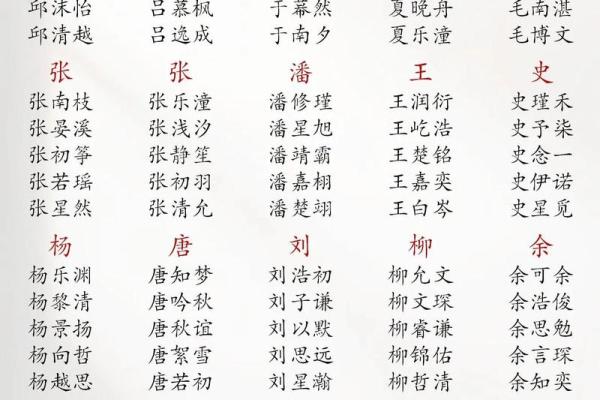 邱沫怡 吕慕枫 于幕然 夏晚舟 毛南湛
邱清越 吕逸成 于南夕 夏乐潼 毛博文
张 张 潘 王 史
张南枝 张乐潼 潘修瑾 王润衍 史瑾禾
张晏溪 张浅汐 潘星旭 王屹浩 史予柒
张初筝 张静笙 潘靖霸 王楚铭 史念一
张若瑶 张初羽 潘嘉栩 王嘉奕 史伊诺
张星然 张清允 潘楚翊 王白岑 史星觅
杨 唐 刘 柳 余
杨乐渊 唐知梦 刘浩初 柳允文 余可余
杨黎清 唐吟秋 刘子谦 柳文琛 余浩俊
杨景扬 唐秋谊 刘以默 柳睿谦 余思勉
杨向哲 唐絮雪 刘思远 柳锦佑 余言琛
杨越思 唐若初 刘星瀚 柳哲清 余知奕